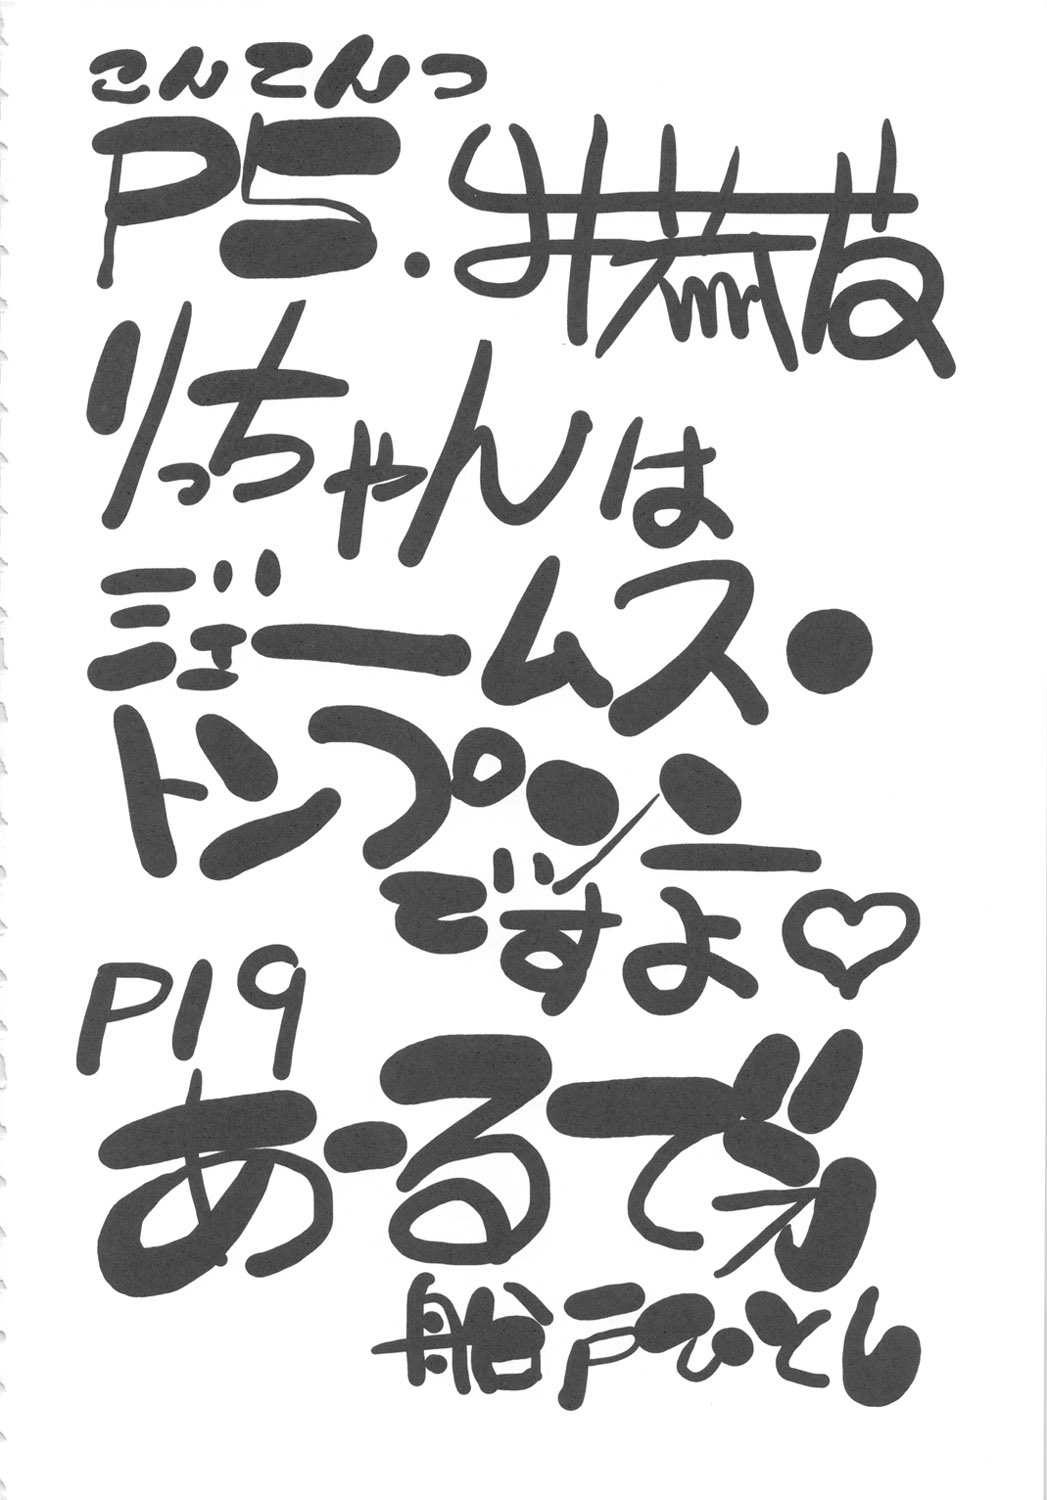 こんてんつ
P5.
りっちゃんは
ジェームス・
トンプソン
ですよ♡
P19
あーるでぃ
船戸ひとし